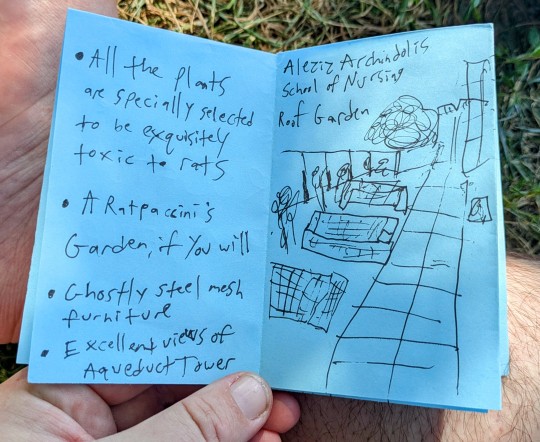 • All the plants
are specially selected
to be exquisitely
toxic to rats
• A Ratpaccini's
Garden, if you will
• Ghostly steel mesh
furniture
• Excellent views of
Aqueduct Tower
Aleziz Archindolis
School of Nursing
Roof Garden